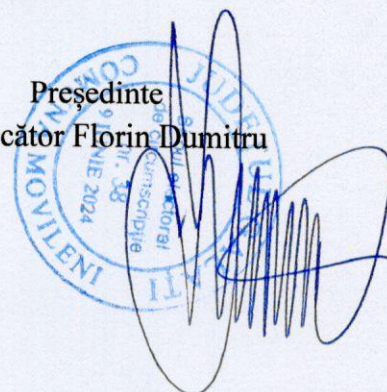 Președinte
cător Florin Dumitru
JUDEȚUL GALAȚI
COMUNA MOVILENI
electoral
circumscripție
nr. 38
9 IUNIE 2024